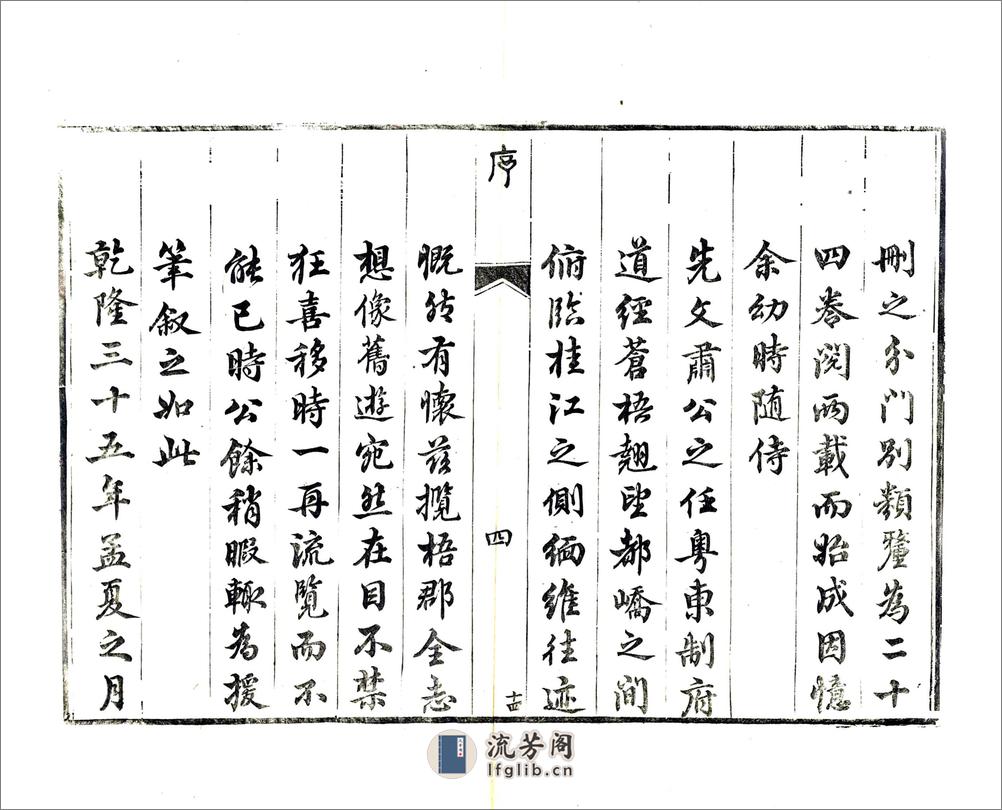 刪之分門別類釐為二十
四卷閱兩載而始成因憶
余幼時随侍
先文肅公之任粵東制府
道經蒼梧翹望都嶠之間
俯臨桂江之側緬維往迹
序
四
十四
慨然有懷茲攬梧郡全志
想像舊遊宛然在目不禁
狂喜移時一再流覽而不
能已時公餘稍暇輒為援
筆叙之如此
乾隆三十五年孟夏之月
流芳阁
lfglib.cn